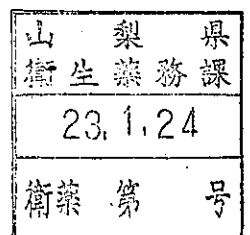 山梨県
衛生薬務課
23.1.24
衛薬第 号